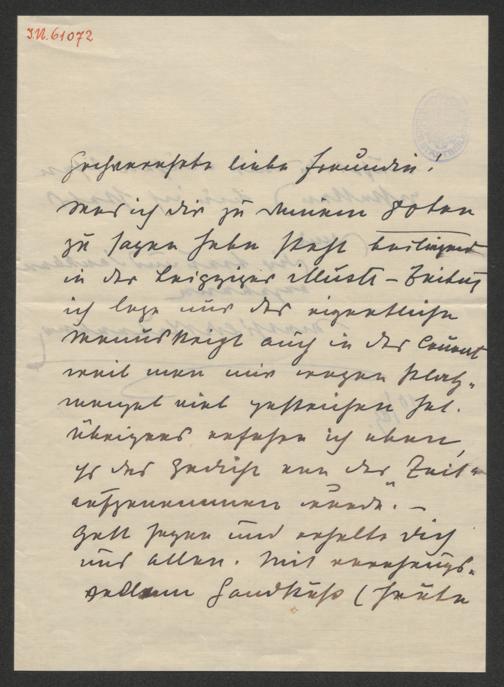 J.N. 61072
Hochverehrte liebe Freundin!
Was ich dir zu deinem 80ten
zu sagen habe steht beiliegend
in der Leipziger illustr-Zeitung
ich lege nur das eigentliche
Manuskript auch in das Couvert
weil man mir wegen Platz-
mangel viel gestrichen hat.
Übrigens erfahre ich eben,
das Gedicht von der Zeit-
aufgenommen wurde. –
Gott segne und erhalte dich
uns allen. Mit verehrungs-
vollem Handkuß (heute